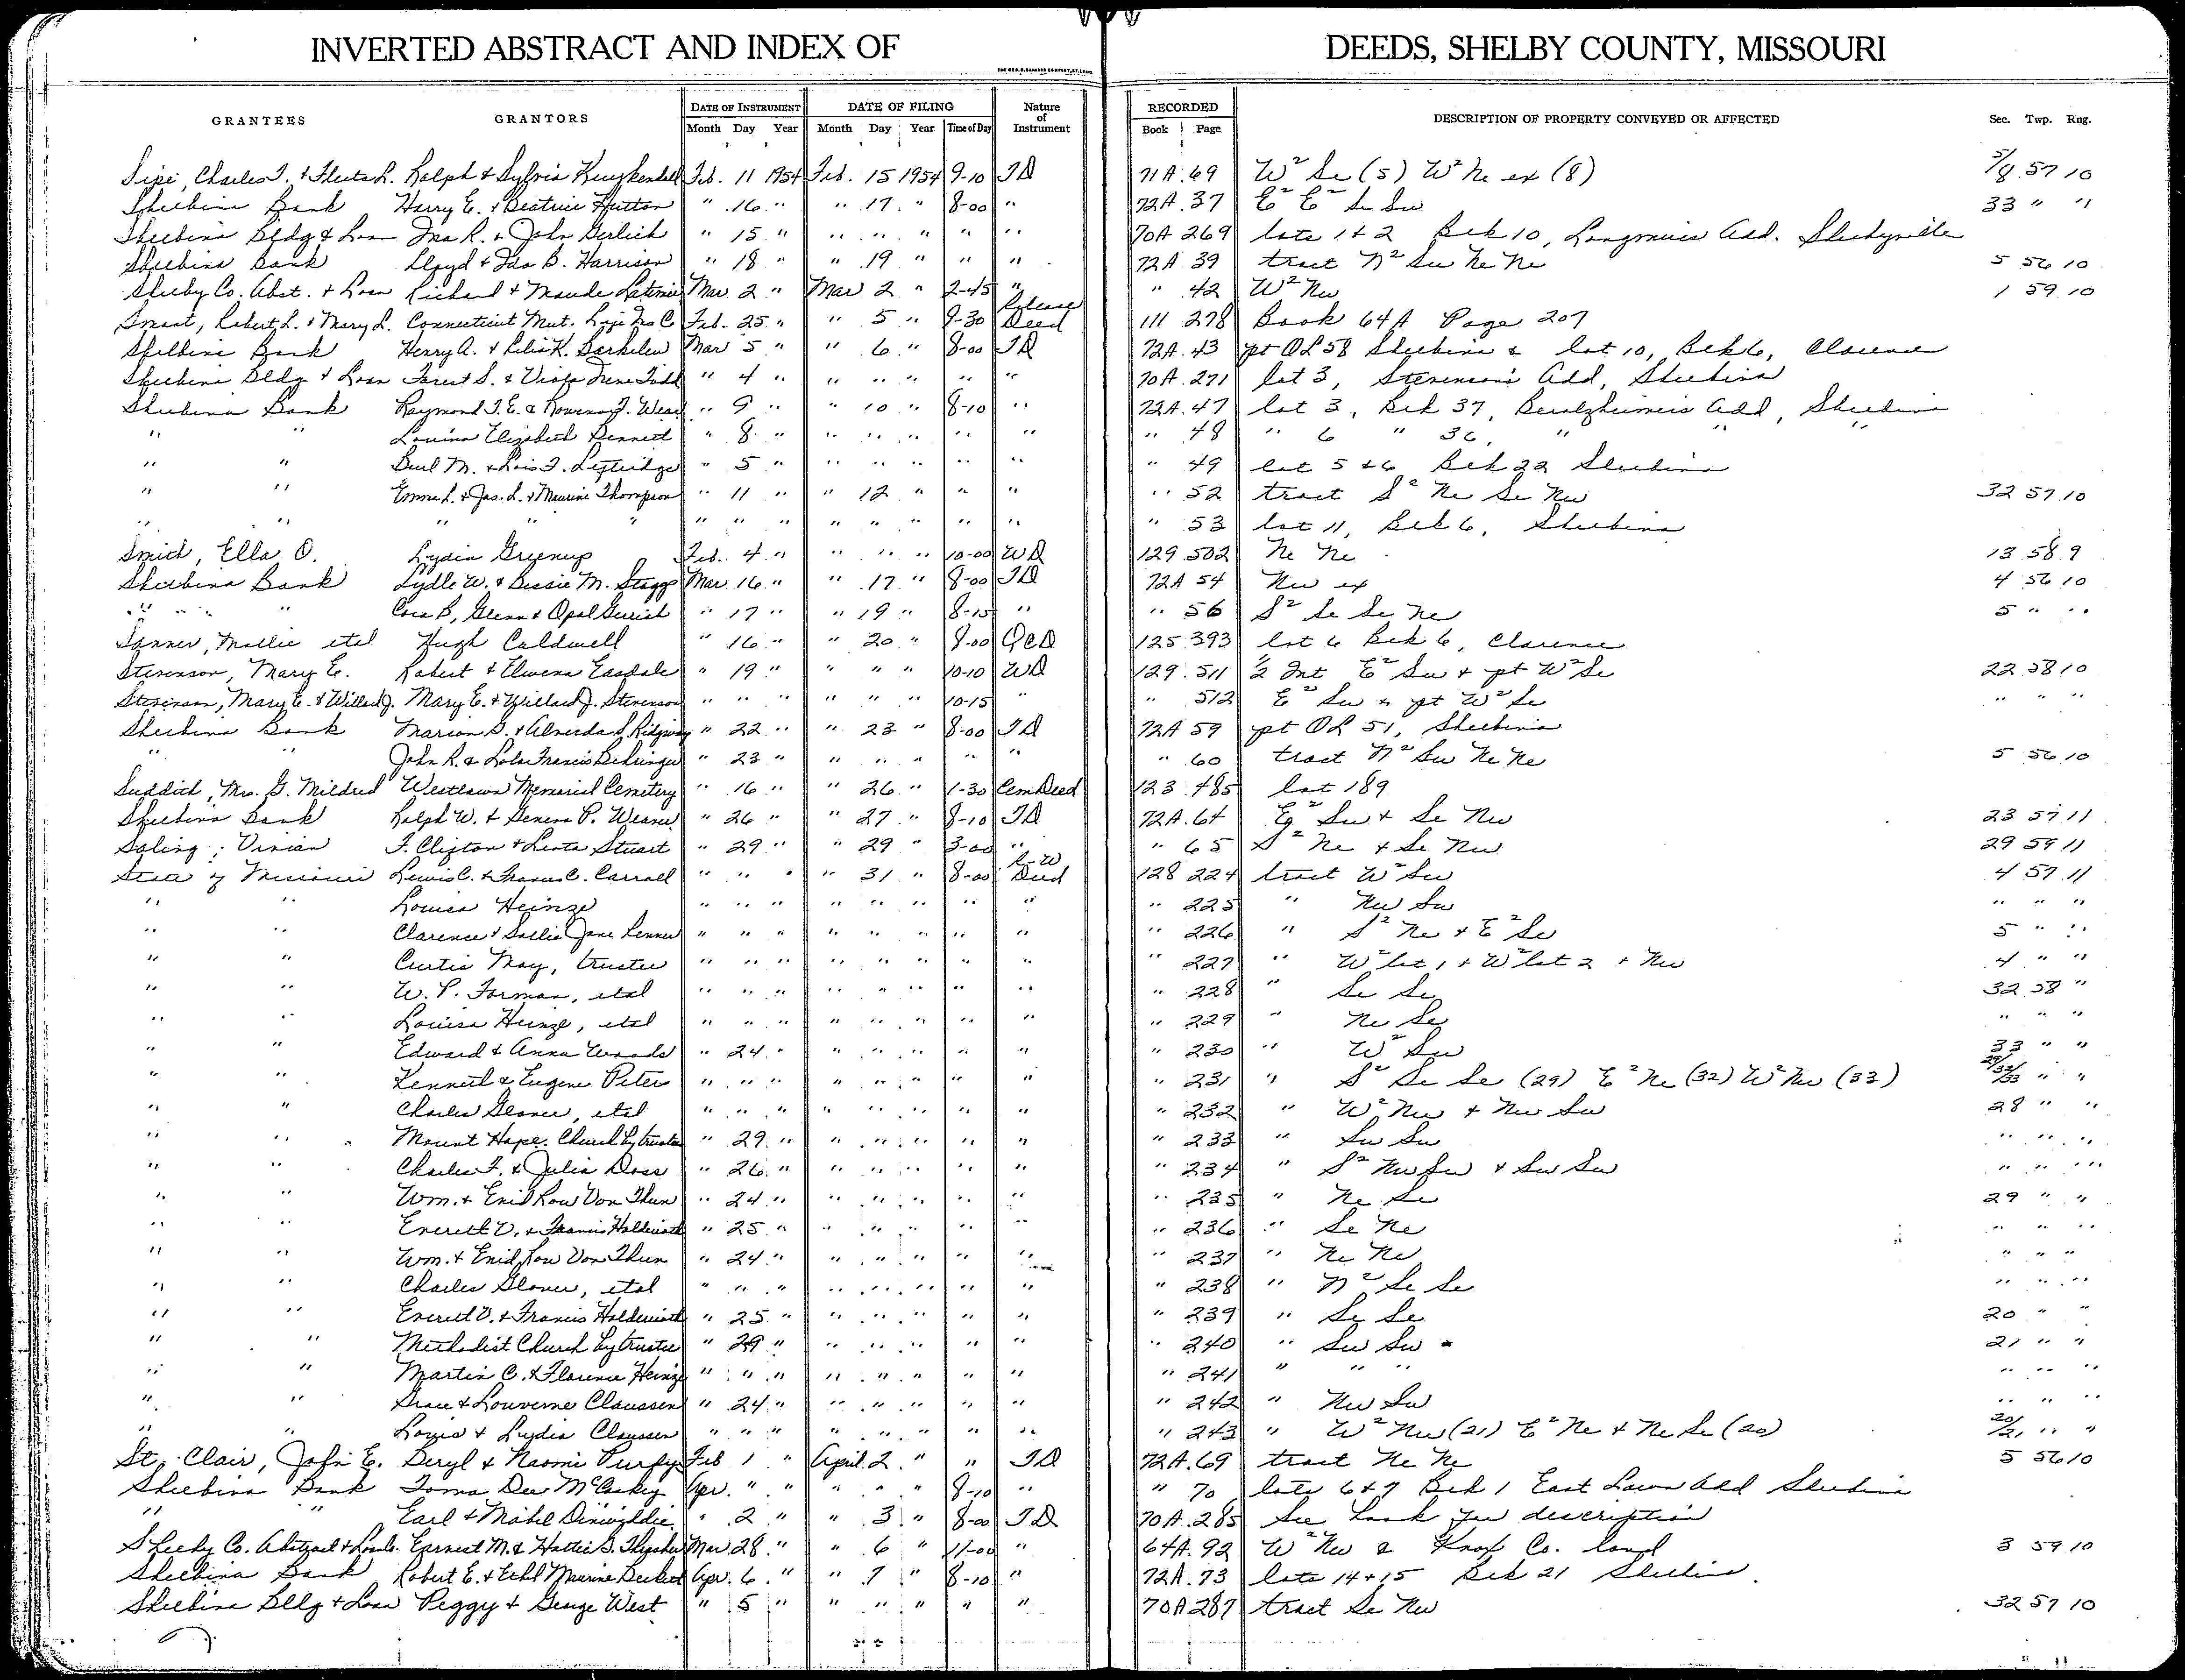 INVERTED ABSTRACT AND INDEX OF DEEDS, SHELBY COUNTY, MISSOURI
GRANTEES GRANTORS DATE OF INSTRUMENT DATE OF FILING Nature of Instrument RECORDED DESCRIPTION OF PROPERTY CONVEYED OR AFFECTED Sec. Twp. Rng.
Month Day Year Month Day Year Time of Day Book Page
Sipe, Charles T. & L. Ralph & Sylvia Kuykendall Feb. 11 1954 Feb. 15 1954 9-10 TD 71A 69 W² Se (5) W² Ne ex (8) 5/8 57 10
Shelbina Bank Harry E. & Beatrice Hutton " 16 " " 17 " 8-00 " 72A 37 E² E² Se Sw 33 " "
Shelbina Bldg & Loan Ina R. & John Gerlich " 15 " " " " " " 70A 269 lots 1 & 2 Blk 10, Add. Shelbyville
Shelbina Bank Lloyd & Ida B. Harrison " 18 " " 19 " " " 72A 39 tract N² Sw Ne Ne 5 56 10
Shelby Co. Abst. & Loan Richard & Maude Latimer Mar 2 " Mar 2 " 2-45 " " 42 W² Nw 1 59 10
Smart, Robert L. & Mary L. Connecticut Mut. Life Ins Co Feb. 25 " " 5 " 9-30 Release Deed 111 278 Book 64A Page 207
Shelbina Bank Henry A. & Lelia K. Barkelew Mar 5 " " 6 " 8-00 TD 72A 43 pt OL 58 Shelbina & lot 10, Blk 6, Clarence
Shelbina Bldg & Loan Forest S. & Viola Irene Todd " 4 " " " " " " 70A 271 lot 3, Stevenson's Add, Shelbina
Shelbina Bank Raymond T.E. & Rowena J. Wear " 9 " " 10 " 8-10 " 72A 47 lot 3, Blk 37, Add, Shelbina
" " Elizabeth Bennett " 8 " " " " " " " 48 " 6 " 36, " " "
" " M. & Lois F. " 5 " " " " " " " 49 lot 5 & 6 Blk 22 Shelbina
" " Emma L. & Jas. L. & Maurine Thompson " 11 " " 12 " " " " 52 tract S² Ne Se Nw 32 57 10
" " " " " " " " " " " " " " 53 lot 11, Blk 6, Shelbina
Smith, Ella O. Lydia Greenup Feb. 4 " " " " 10-00 WD 129 502 Ne Ne 13 58 9
Shelbina Bank Lydle W. & Bessie M. Stagg Mar 16 " " 17 " 8-00 TD 72A 54 Nw ex 4 56 10
" " " Cora B, Glenn & Opal " 17 " " 19 " 8-15 " " 56 S² Se Se Ne 5 " "
Sanner, Mollie etal Hugh Caldwell " 16 " " 20 " 8-00 QCD 125 393 lot 6 Blk 6, Clarence
Stevenson, Mary E. Robert & Elwena Easdale " 19 " " " " 10-10 WD 129 511 ½ Int E² Sw & pt W² Se 22 58 10
Stevenson, Mary E. & Willard J. Mary E. & Willard J. Stevenson " " " " " " 10-15 " " 512 E² Sw & pt W² Se " " "
Shelbina Bank Marion D. & Alverda S. Ridgway " 22 " " 23 " 8-00 TD 72A 59 pt OL 51, Shelbina
" " John R. & Lola Francis Behringer " 23 " " " " " " " 60 tract N² Sw Ne Ne 5 56 10
Suddith, Mrs. G. Mildred Westlawn Memorial Cemetery " 16 " " 26 " 1-30 Cem Deed 123 485 lot 189
Shelbina Bank Ralph W. & Geneva P. Weaver " 26 " " 27 " 8-10 TD 72A 64 E² Sw & Se Nw 23 57 11
Saling, Vivian F. Clifton & Leota Stuart " 29 " " 29 " 3-00 " " 65 S² Ne & Se Nw 29 59 11
State of Missouri Lewis C. & Frances C. Carroll " " " " 31 " 8-00 R-W Deed 128 224 tract W² Sw 4 57 11
" " Louisa Heinze " " " " " " " " " 225 " Nw Sw " " "
" " Clarence & Sallie Jane " " " " " " " " " 226 " S² Ne & E² Se 5 " "
" " Curtis May, trustee " " " " " " " " " 227 " W² lot 1 & W² lot 2 & Nw 4 " "
" " W. P. Forman, etal " " " " " " " " " 228 " Se Se 32 58 "
" " Louisa Heinze, etal " " " " " " " " " 229 " Ne Se " " "
" " Edward & Anna Woods " 24 " " " " " " " 230 " W² Sw 33 " "
" " Kenneth & Eugene Peters " " " " " " " " " 231 " S² Se Se (29) E² Ne (32) W² Nw (33) 29/32/33 " "
" " Charles Glover, etal " " " " " " " " " 232 " W² Nw & Nw Sw 28 " "
" " Mount Hope Church by trustee " 29 " " " " " " " 233 " Sw Sw " " "
" " Charles F. & Julia Doss " 26 " " " " " " " 234 " S² Nw Sw & Sw Sw " " "
" " Wm. & Enid Low Von Thun " 24 " " " " " " " 235 " Ne Se 29 " "
" " Everett D. & Francis Holderieath " 25 " " " " " " " 236 " Se Ne " " "
" " Wm. & Enid Low Von Thun " 24 " " " " " " " 237 " Ne Ne " " "
" " Charles Glover, etal " " " " " " " " " 238 " N² Se Se " " "
" " Everett D. & Francis Holderieath " 25 " " " " " " " 239 " Se Se 20 " "
" " Methodist Church by trustee " 29 " " " " " " " 240 " Sw Sw 21 " "
" " Martin C. & Florence Heinze " " " " " " " " " 241 " " " " " "
" " Grace & Louverne Claussen " 24 " " " " " " " 242 " Nw Sw " " "
" " Louis & Lydia Claussen " " " " " " " " " 243 " W² Nw (21) E² Ne & Ne Se (20) 20/21 " "
St. Clair, John E. Deryl & Naomi Purpy Feb 1 " April 2 " " TD 72A 69 tract Ne Ne 5 56 10
Shelbina Bank Toma Dee McCoskey Apr. " " " " " 8-10 " " 70 lots 6 & 7 Blk 1 East Lawn Add Shelbina
" " Earl & Mabel Dinwiddie " 2 " " 3 " 8-00 TD 70A 285 See book for description
Shelby Co. Abstract & Loan Co. Earnest M. & Hattie D. Mar 28 " " 6 " 11-00 " 64A 92 W² Nw & Knox Co. land 3 59 10
Shelbina Bank Robert E. & Ethel Maurine Apr. 6 " " 7 " 8-10 " 72A 73 lots 14 & 15 Blk 21 Shelbina.
Shelbina Bldg & Loan Peggy & George West " 5 " " " " " " 70A 287 tract Se Nw 32 57 10